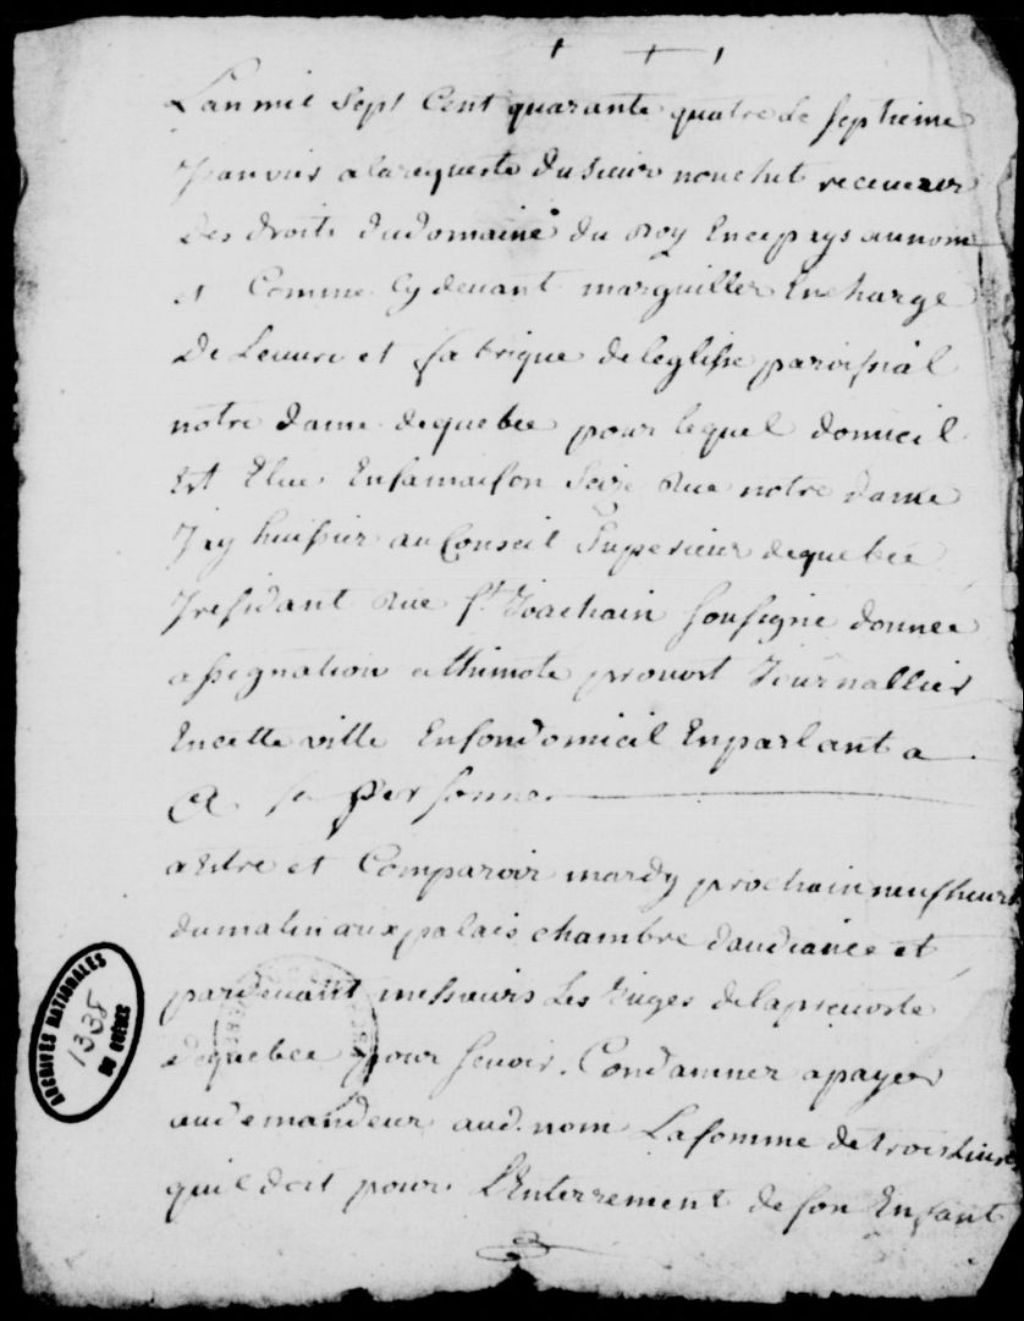 Lan mil Sept Cent quarante quatre le septieme
Janvier a la requeste du Sieur nouchet receveur
des droits du domaine du Roy En ce pays au nom
et Comme Cy devant marguiller En charge
De Leuvre et fabrique de leglisse paroissial
notre dame de quebec pour lequel domicil
Est Elue En sa maison Scize Rue notre dame
Jay huissier au Conseil Superieur de quebec
Y residant Rue St Joachain sousigné donnee
assignation a thimote provost Journallier
En cette ville En son domicil En parlant a
a sa Personne
a Estre et Comparoir mardy prochain neuf heures
du matin aux palais chambre daudiance et
pardevant messieurs Les Juges de la prevoste
de quebec pour se voir Condamner a payer
au demandeur aud. nom La somme de trois Livres
quil doit pour L'Enterrement de son Enfant
ARCHIVES NATIONALES
1335
DU QUÉBEC